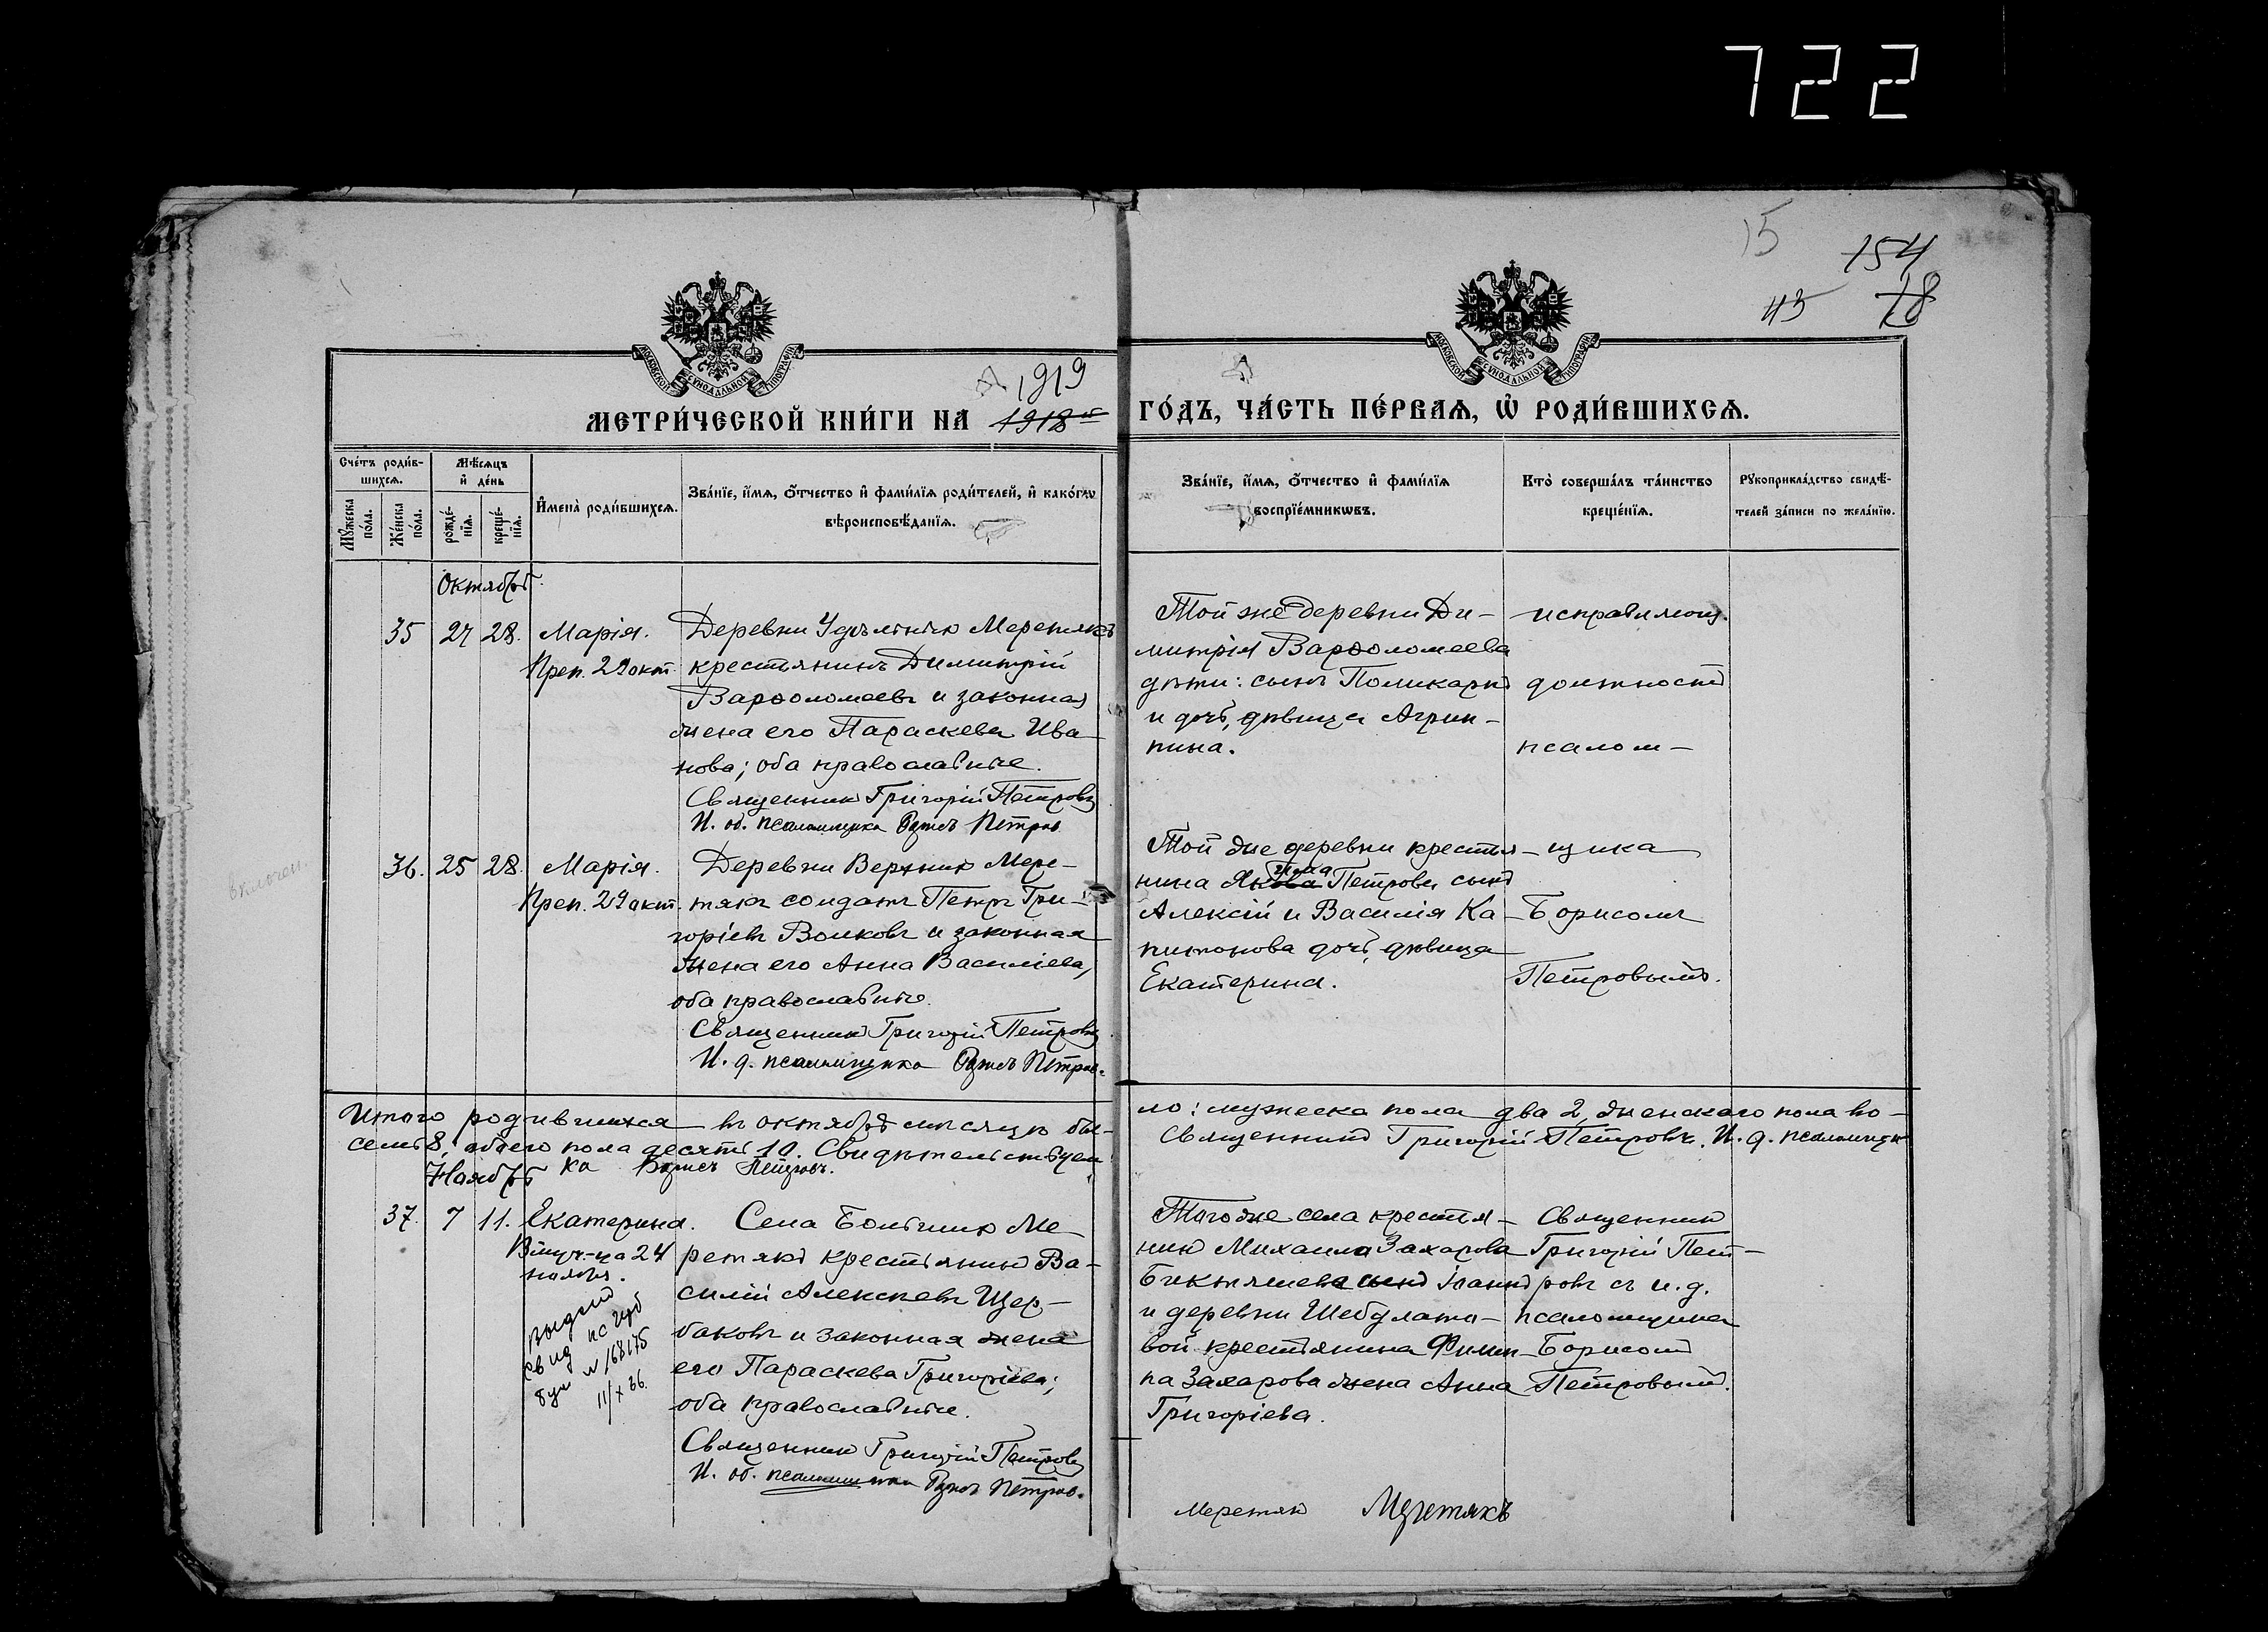 722
15
154
43 78
МОСКОВСКОЙ СѴНОДАЛЬНОЙ ТИПОГРАФІИ
МОСКОВСКОЙ СѴНОДАЛЬНОЙ ТИПОГРАФІИ
1919
МЕТРИ́ЧЕСКОЙ КНИ́ГИ НА 1918 й ГО́ДЪ, ЧА́СТЬ ПЕ́РВАѦ, Ѡ҆ РОДИ́ВШИХСѦ.
Сче́тъ роди́в-
шихсѧ.
Мꙋ́жеска по́ла.
Же́нска по́ла.
Мѣ́сѧцъ и҆ де́нь
рожде́-
нїѧ.
креще́-
нїѧ.
И҆мена̀ роди́вшихсѧ.
Зва́нїе, и҆́мѧ, ѻ҆́тчество и҆ фами́лїѧ роди́телей, и҆ како́гѡ
вѣроисповѣ́данїѧ.
Зва́нїе, и҆́мѧ, ѻ҆́тчество и҆ фами́лїѧ
воспрїе́мникѡвъ.
Кто̀ соверша́лъ та́инство
креще́нїѧ.
Рꙋкоприкла́дство свидѣ́-
телей за́писи по жела́нїю.
Октябрь.
35 27 28. Марія.
Преп. 29 окт.
Деревни Удѣльныхъ Меретякъ
крестьянинъ Димитрій
Варѳоломаевъ и законная
жена его Параскева Ива-
нова; оба православные.
Священникъ Григорій Петровъ
И. об. псаломщика Борисъ Петров
Той же деревни Ди-
митрія Варѳоломеева
дѣти: сынъ Поликарпъ
и дочь, дѣвица Агрип-
пина.
исправляющ.
должность
псалом-
включен
36. 25 28. Марія.
Преп. 29 окт.
Деревни Верхнихъ Мере-
тякъ солдатъ Петръ Гри-
горіевъ Волковъ и законная
жена его Анна Василіева,
оба православные.
Священникъ Григорій Петровъ
И. д. псаломщика Борисъ Петров.
Той же деревни крестья-
нина Якова Петрова сынъ
Алексій и Василія Ка-
питонова дочь, дѣвица
Екатерина.
щика
Борисомъ
Петровымъ.
Итого родившихся въ октябрѣ мѣсяцѣ бы-
ло: мужеска пола два 2, женскаго пола во-
семь 8, обоего пола десять 10. Свидѣтельствуемъ
Священникъ Григорій Петровъ. И. д. псаломщи
ка Борисъ Петровъ.
Ноябрь
37. 7 11. Екатерина.
24
ноября.
Выдан
свид
№ 168175
11/X 36.
Села Большихъ Ме-
ретякъ крестьянинъ Ва-
силій Алексѣевъ Щер-
баковъ и законная жена
его Параскева Григоріева;
оба православные.
Священникъ Григорій Петровъ
И. об. псаломщика Борисъ Петров.
Того же села крестья-
нинъ Михаила Захарова
Биктяшева сынъ Іоаннъ
и деревни Шебулато-
вой крестьянина Филип-
па Захарова жена Анна
Григоріева.
Священникъ
Григорій Пет-
ровъ съ и. д.
псаломщика
Борисомъ
Петровымъ.
Меретякъ Меретякъ